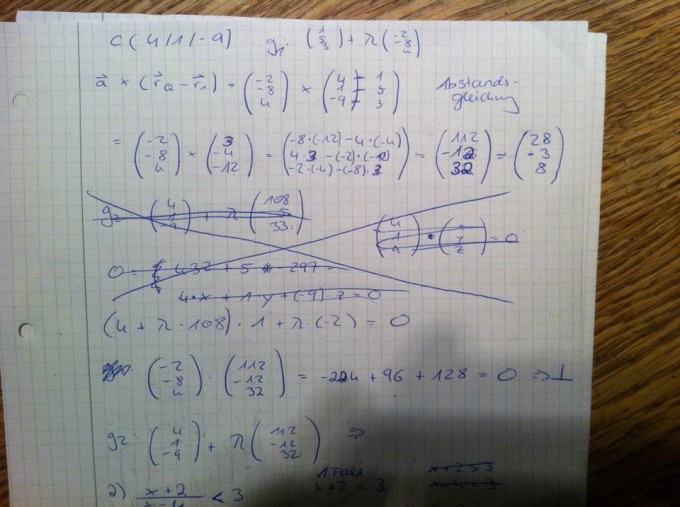 C(4/1/-9) g1: (1 5 3) + λ (-2 -8 4)
a⃗ × (r⃗Q - r⃗1) = (-2 -8 4) × (4 - 1 1 - 5 -9 - 3) Abstandsgleichung
= (-2 -8 4) × (3 -4 -12) = (-8·(-12) - 4·(-4) 4·3 - (-2)·(-12) -2·(-4) - (-8)·3) = (112 -12 32) = (28 -3 8)
g2 = (4 1 -9) + λ (108 5 33)
(4 1 9) · (x y z) = 0
0 = 432 + 5 - 297 =
4·x + 1·y + (-9)·z = 0
(4 + λ·108)·1 + λ·(-2) = 0
(-2 -8 4) · (112 -12 32) = -224 + 96 + 128 = 0 ⇒ ⊥
g2: (4 1 -9) + λ (112 -12 32) ⇒
2) x+2 / x-4 < 3 1. Fall x+2 < 3